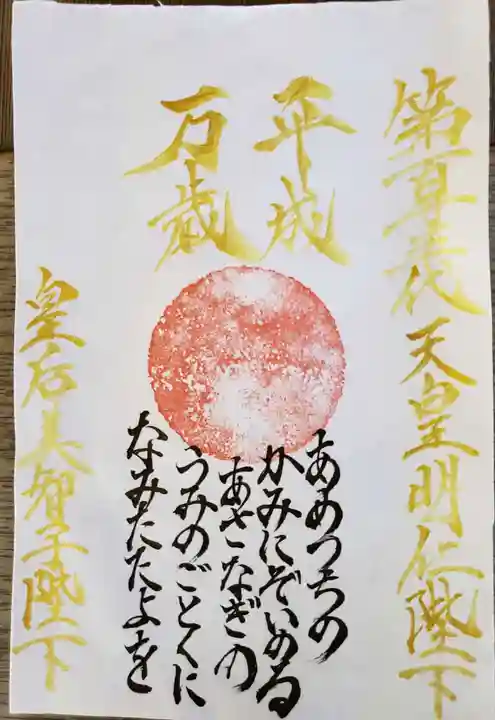 第百二十五代天皇明仁陛下
平成
万歳
あめつちの
かみにぞいのる
あさなぎの
うみのごとくに
なみたたよを
皇后美智子陛下